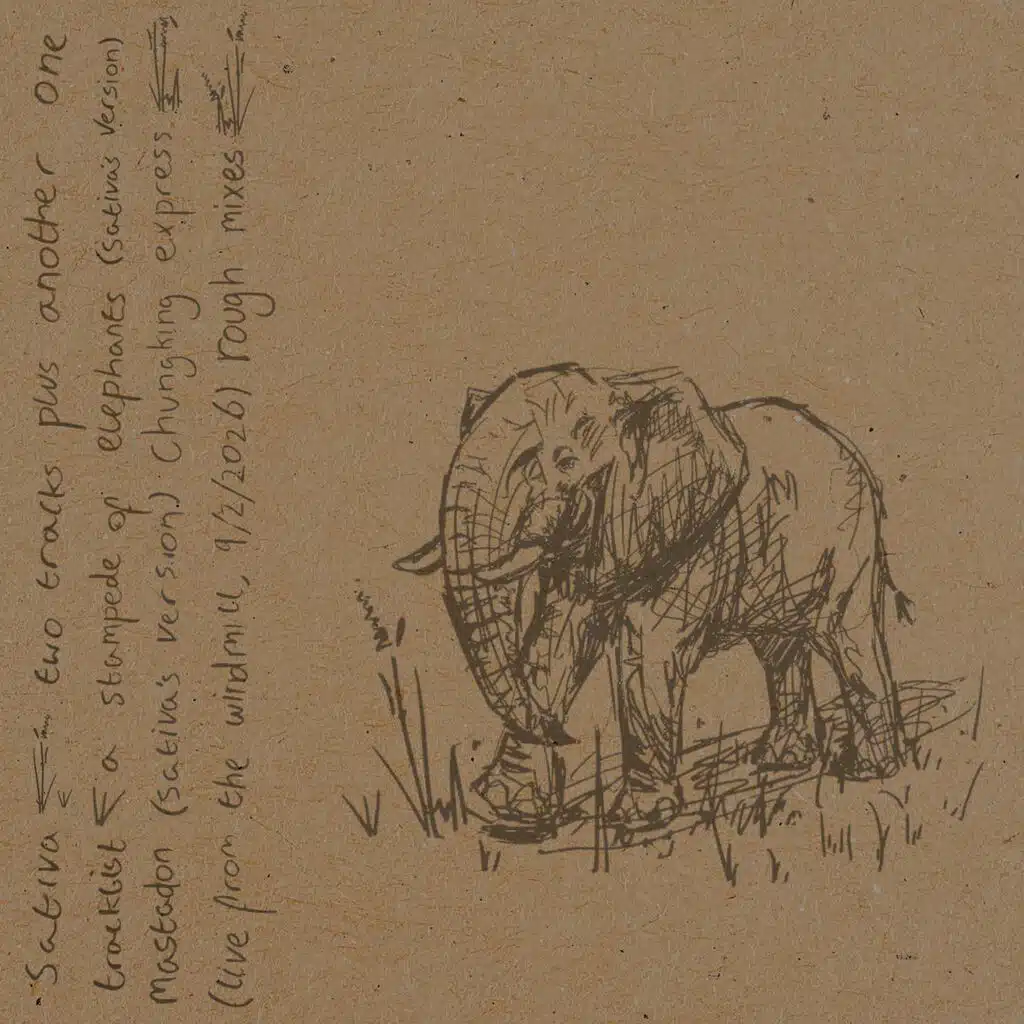 Sativa two tracks plus another one
tracklist a stampede of elephants (sativa's version)
Mastadon (sativa's version) Chungking express
(live from the windmill, 9/2/2026) rough mixes